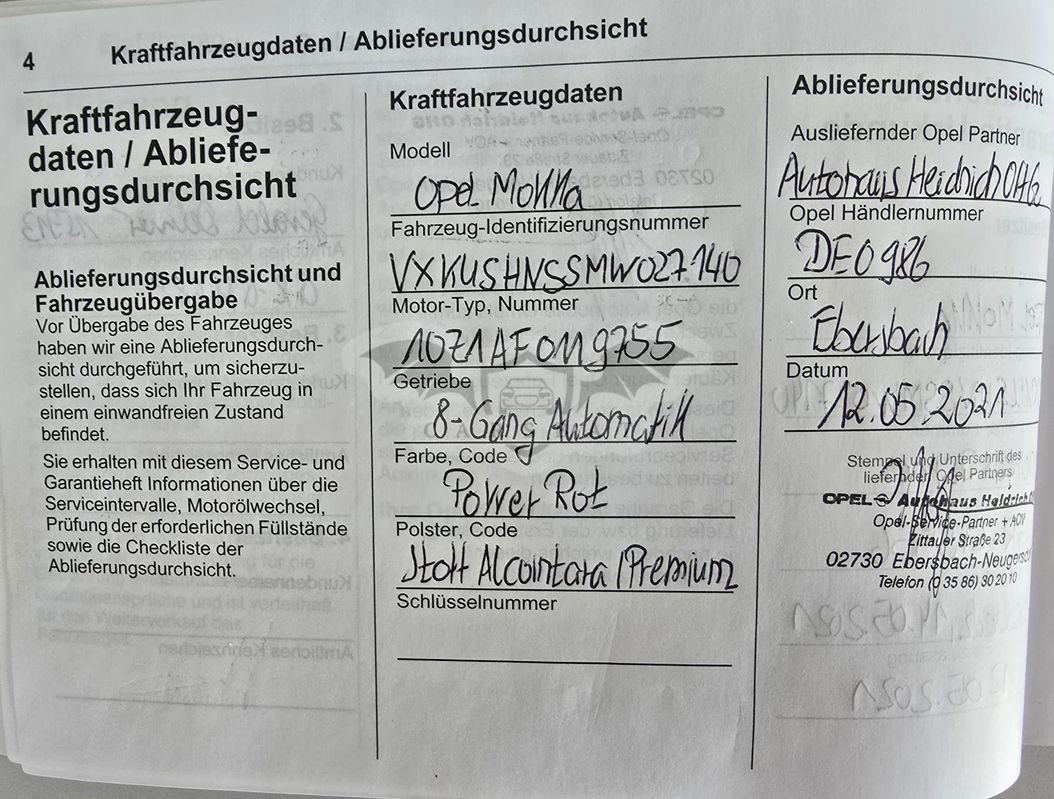 4
Kraftfahrzeugdaten / Ablieferungsdurchsicht
Kraftfahrzeug-
daten / Abliefe-
rungsdurchsicht
Ablieferungsdurchsicht und
Fahrzeugübergabe
Vor Übergabe des Fahrzeuges
haben wir eine Ablieferungsdurch-
sicht durchgeführt, um sicherzu-
stellen, dass sich Ihr Fahrzeug in
einem einwandfreien Zustand
befindet.
Sie erhalten mit diesem Service- und
Garantieheft Informationen über die
Serviceintervalle, Motorölwechsel,
Prüfung der erforderlichen Füllstände
sowie die Checkliste der
Ablieferungsdurchsicht.
Kraftfahrzeugdaten
Modell
Opel Mokka
Fahrzeug-Identifizierungsnummer
VXKUSHNSSMW027140
Motor-Typ, Nummer
10Z1AF0119755
Getriebe
8-Gang Automatik
Farbe, Code
Power Rot
Polster, Code
Stoff Alcantara/Premium
Schlüsselnummer
Ablieferungsdurchsicht
Ausliefernder Opel Partner
Autohaus Heidrich OHG
Opel Händlernummer
DE0986
Ort
Ebersbach
Datum
12.05.2021
Stempel und Unterschrift des
liefernden Opel Partners
OPEL Autohaus Heidrich
Opel-Service-Partner + AOV
Zittauer Straße 23
02730 Ebersbach-Neugersd
Telefon (0 35 86) 30 20 10